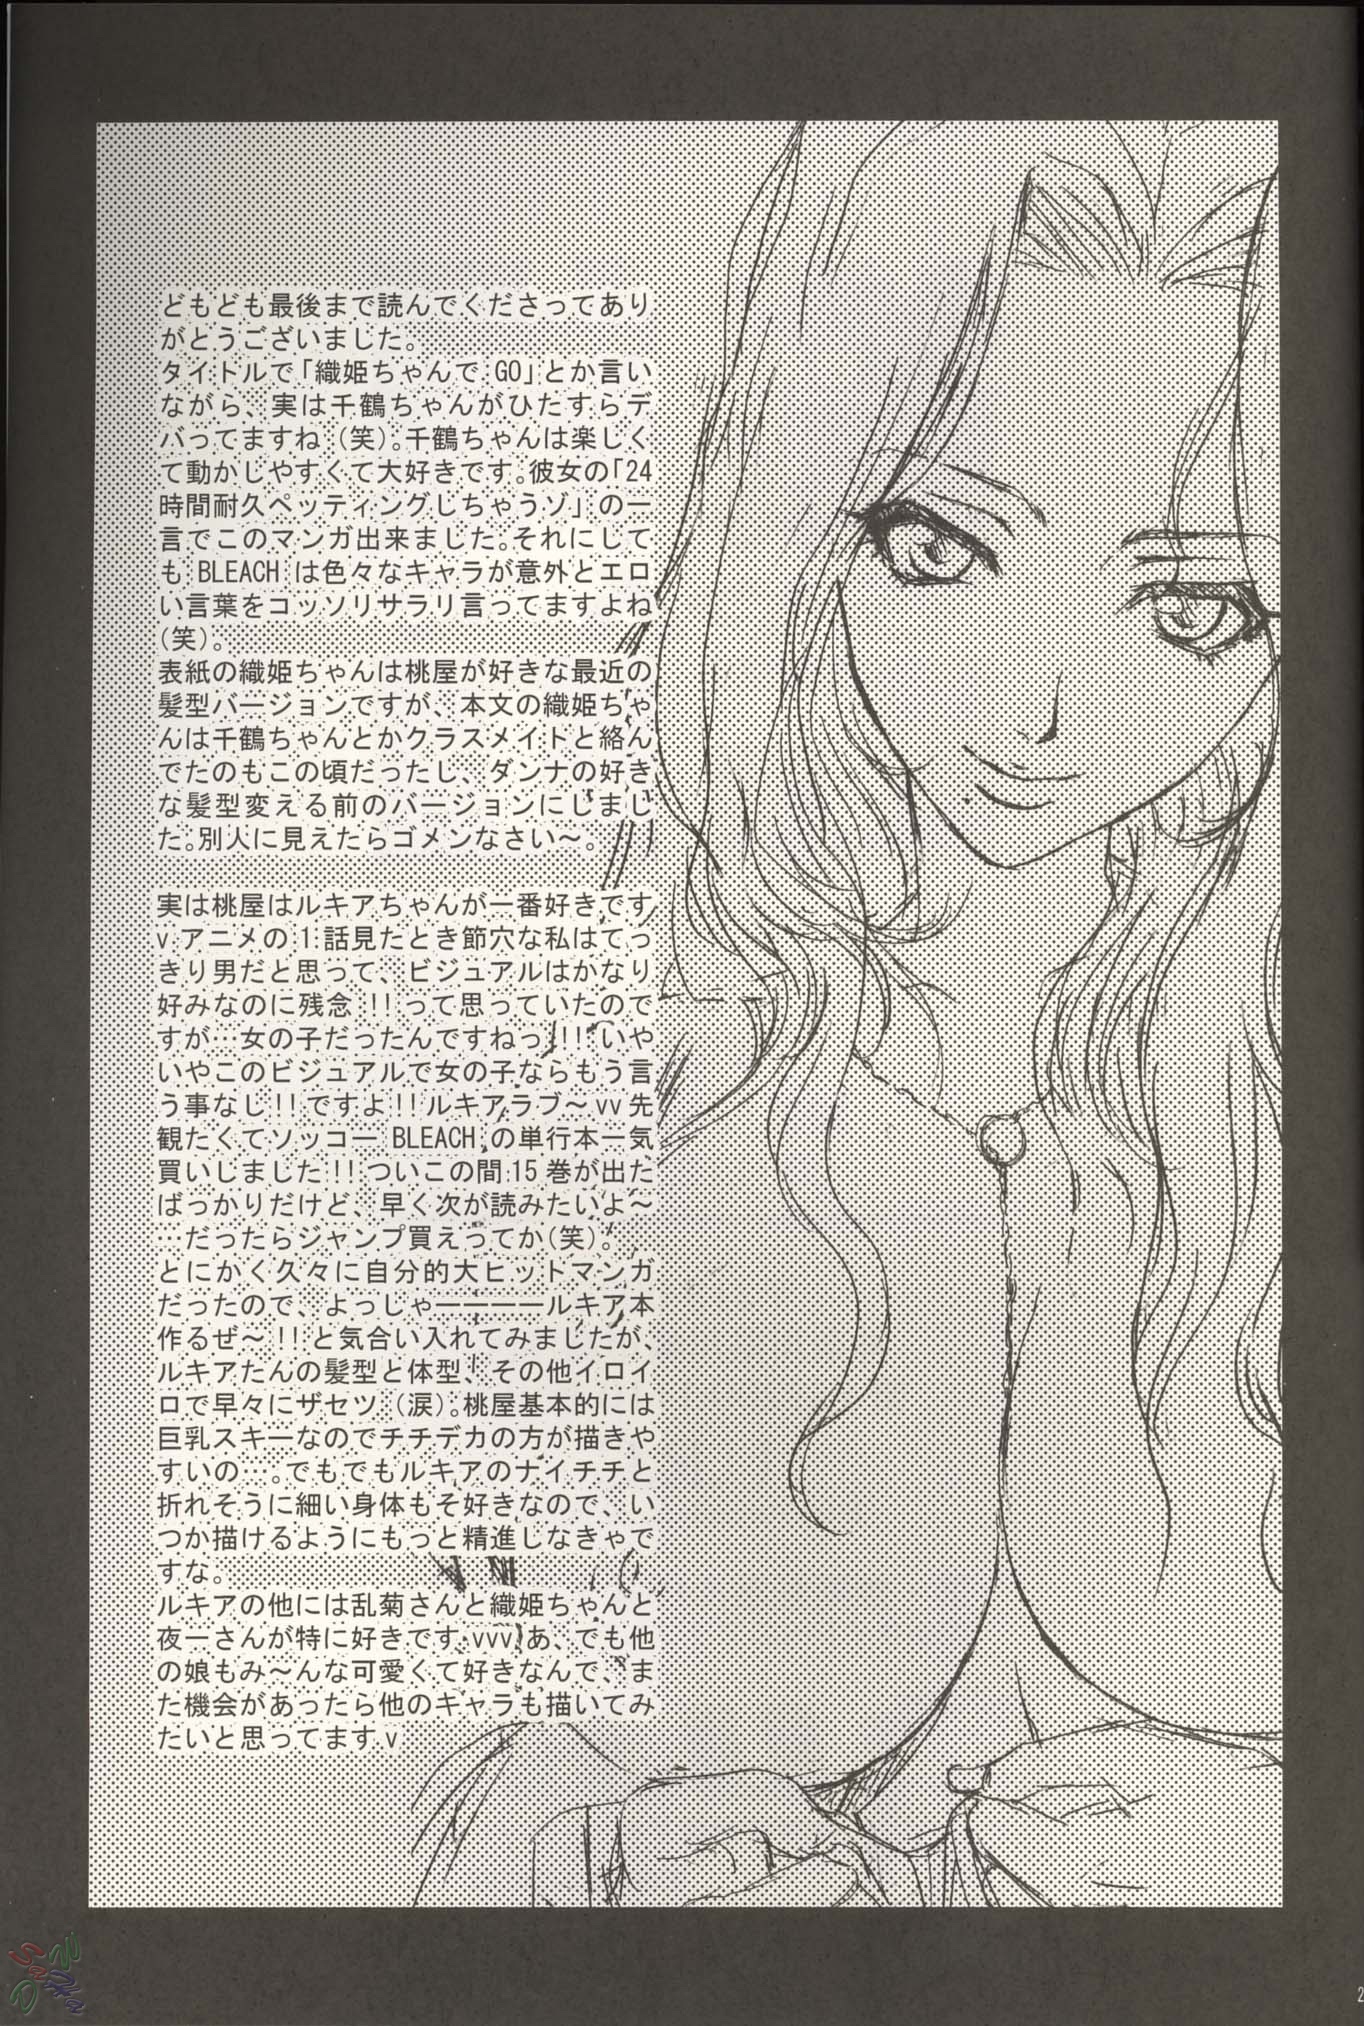 どもども最後まで読んでくださってあり
がとうございました。
タイトルで「織姫ちゃんで GO」とか言い
ながら、実は千鶴ちゃんがひたすらデ
バってますね（笑）。千鶴ちゃんは楽しく
て動かしやすくて大好きです。彼女の「24
時間耐久ペッティングしちゃうゾ」の一
言でこのマンガ出来ました。それにして
も BLEACH は色々なキャラが意外とエロ
い言葉をコッソリサラリ言ってますよね
（笑）。
表紙の織姫ちゃんは桃屋が好きな最近の
髪型バージョンですが、本文の織姫ちゃ
んは千鶴ちゃんとかクラスメイトと絡ん
でたのもこの頃だったし、ダンナの好き
な髪型変える前のバージョンにしまし
た。別人に見えたらゴメンなさい～。
実は桃屋はルキアちゃんが一番好きです
v アニメの 1 話見たとき節穴な私はてっ
きり男だと思って、ビジュアルはかなり
好みなのに残念!!って思っていたので
すが…女の子だったんですねっ!!!いや
いやこのビジュアルで女の子ならもう言
う事なし!!ですよ!!ルキアラブ～vv 先
観たくてソッコー BLEACH の単行本一気
買いしました!!ついこの間 15 巻が出た
ばっかりだけど、早く次が読みたいよ～
…だったらジャンプ買えってか（笑）。
とにかく久々に自分的大ヒットマンガ
だったので、よっしゃーーーールキア本
作るぜ～!!と気合い入れてみましたが、
ルキアたんの髪型と体型、その他イロイ
ロで早々にザセツ（涙）。桃屋基本的には
巨乳スキーなのでチチデカの方が描きや
すいの…。でもでもルキアのナイチチと
折れそうに細い身体もそ好きなので、い
つか描けるようにもっと精進しなきゃで
すな。
ルキアの他には乱菊さんと織姫ちゃんと
夜一さんが特に好きです vvv あ、でも他
の娘もみ～んな可愛くて好きなんで、ま
た機会があったら他のキャラも描いてみ
たいと思ってます v
2